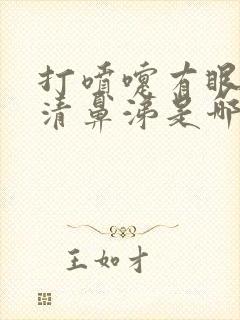 打喷嚏有眼
清鼻涕是哪
王如才